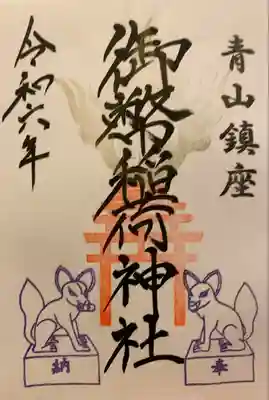 青山鎮座
御幣稲荷神社
令和六年
奉
納